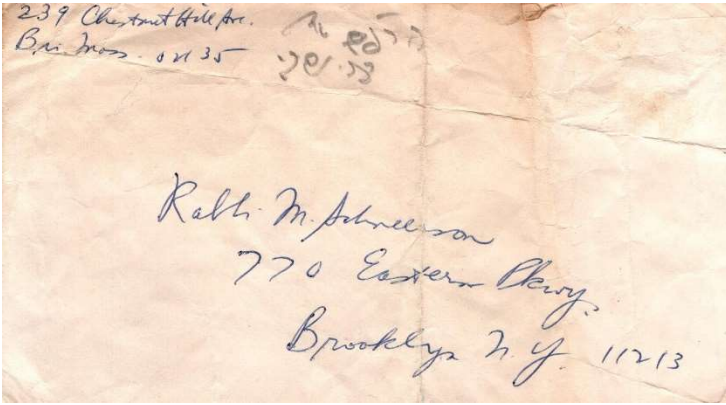 239 Chestnut Hill Ave.
Bri. Mass. 02135
Rabbi M. Schneerson
770 Eastern Pkwy.
Brooklyn N.Y. 11213